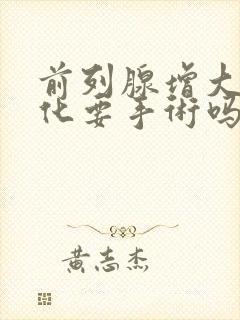 前列腺增大
化要手術吗
黄志杰